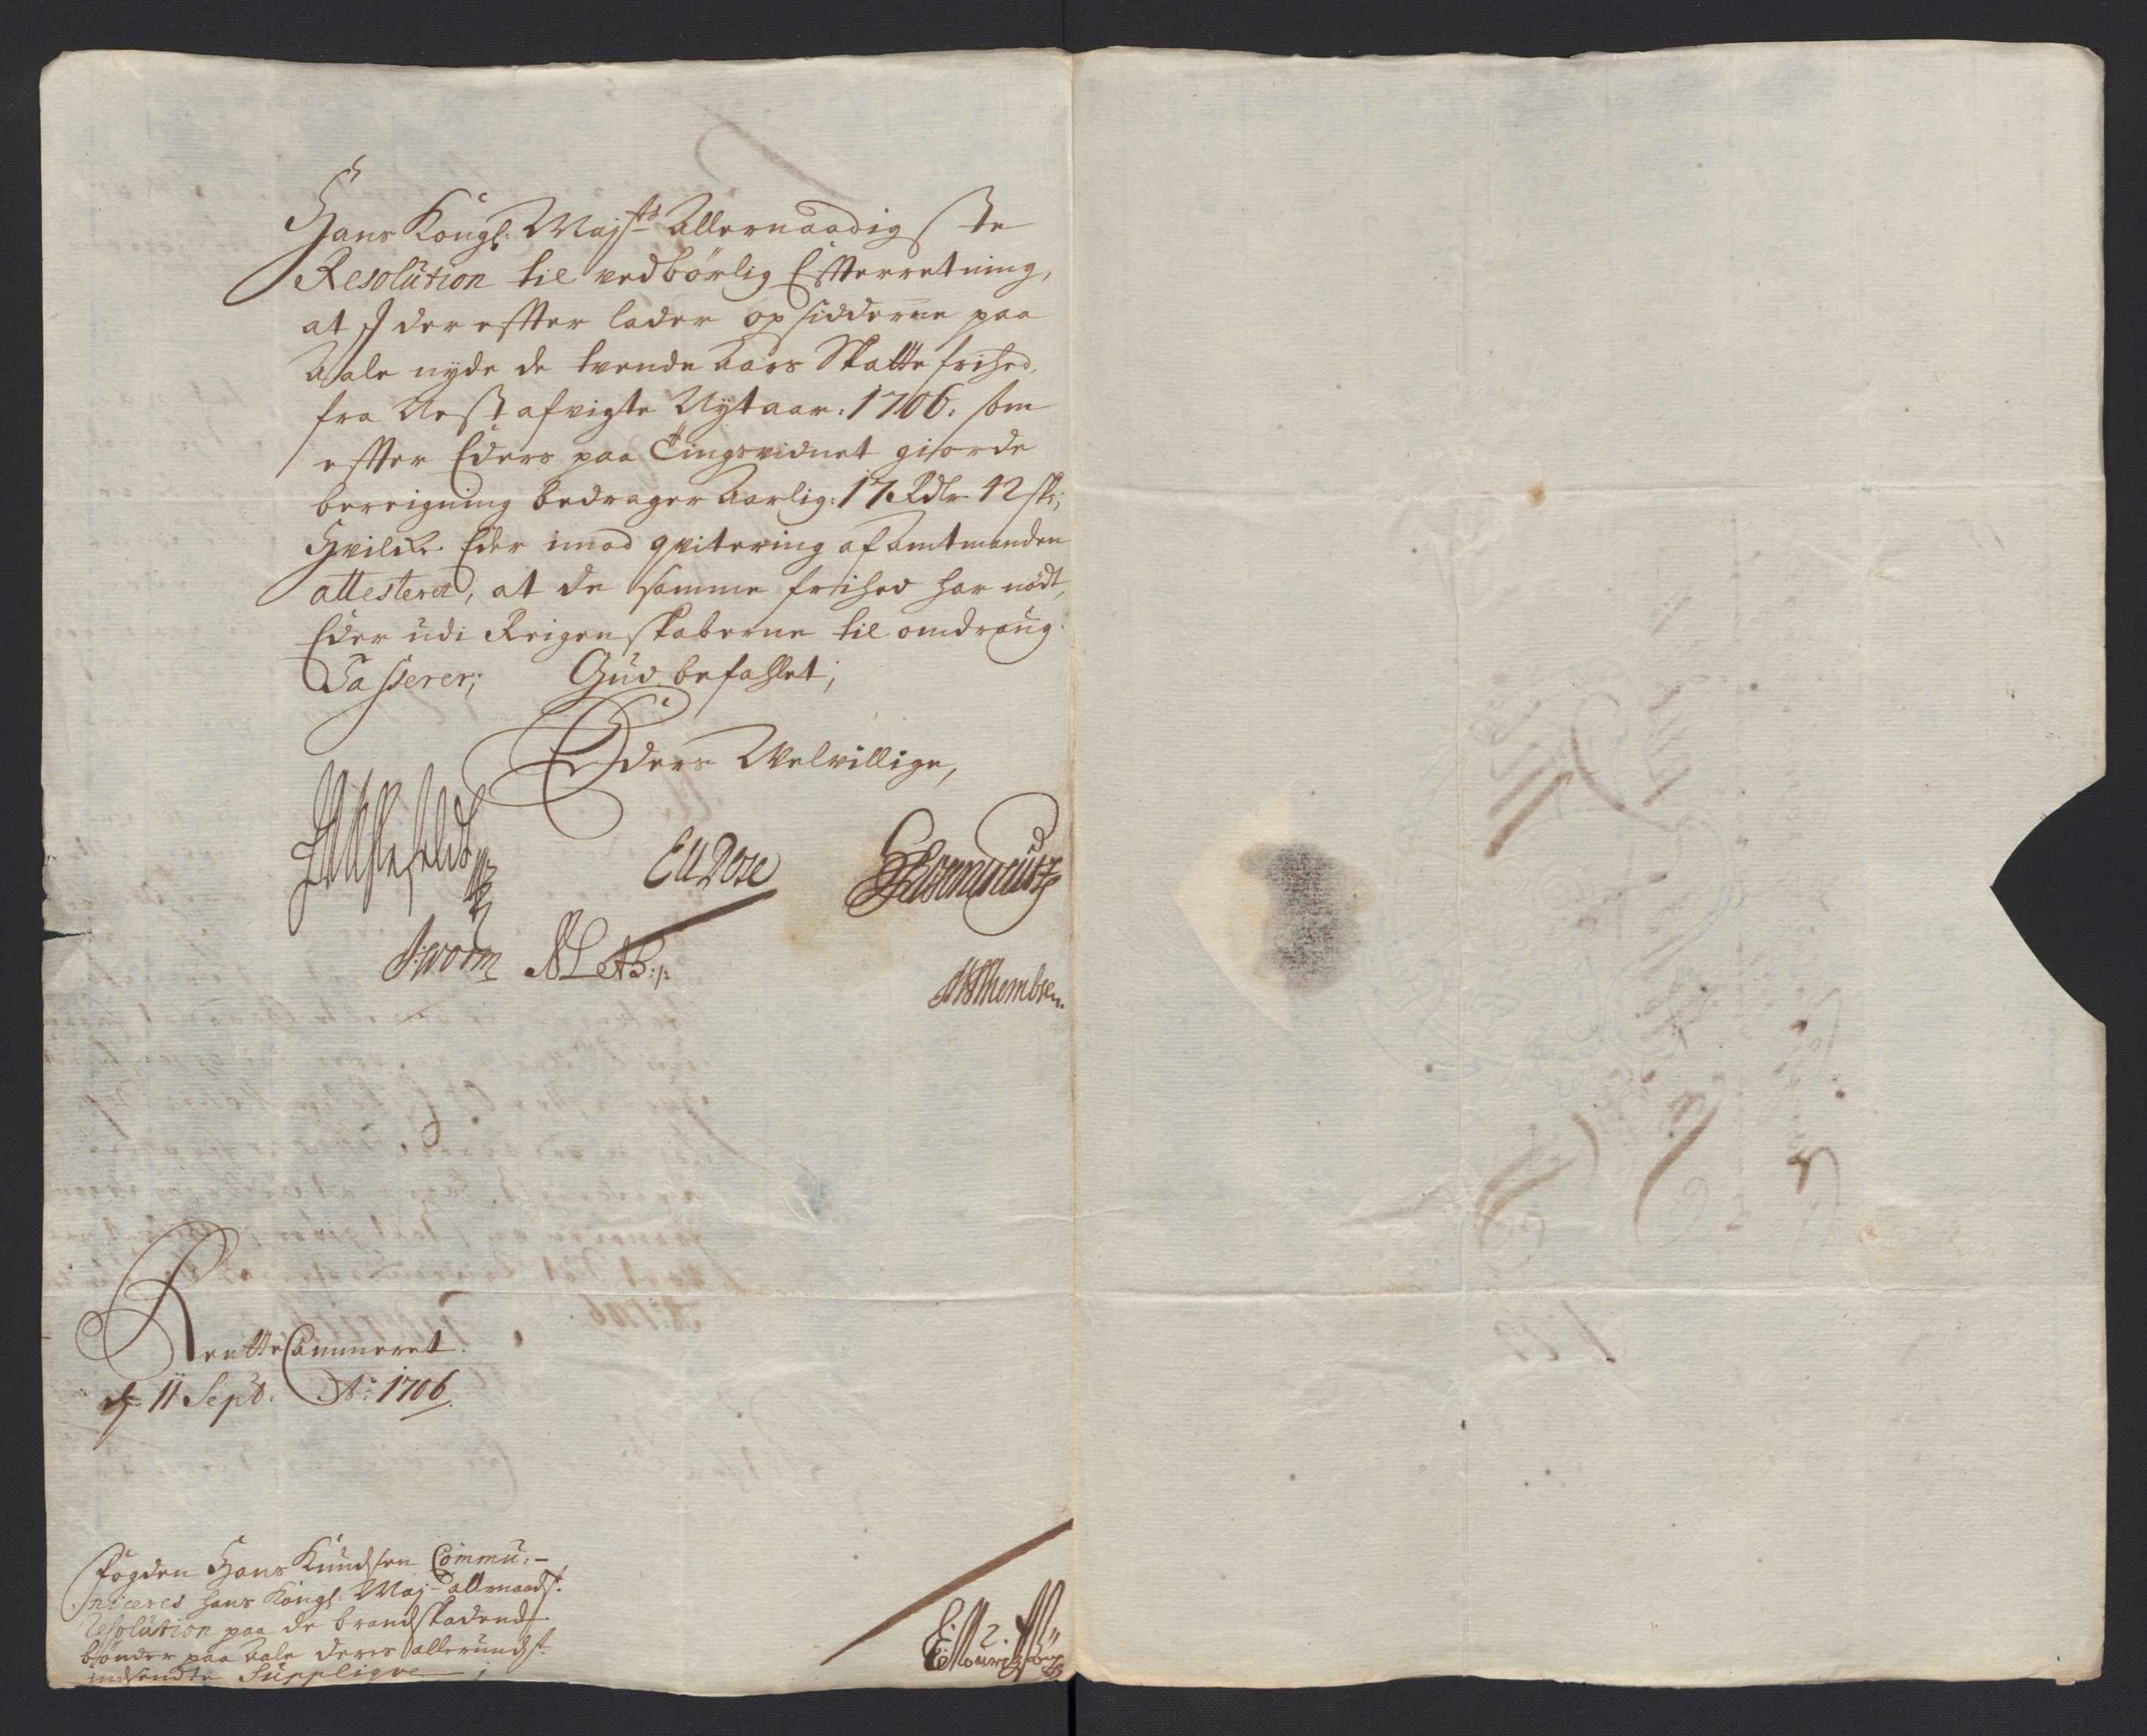 Hans Kongl: Majts Allernaadigste
Resolution til vedbörlig Effterretning,
at I der effter lader opsidderne paa
Aale nyde de tvende Aars Skatte frihed,
fra Nest afvigte Nytaar: 1706: som
effter Eders paa Tingsvidnet giorde
bereigning bedrager Aarlig: 17 Rdlr 42 sk;
Hvilcke Eder imod qvitering af Amtmanden
attesteret, at de samme frihed har nödt,
Eder udi Reigenskaberne til omdraug
Passerer; Gud befahlet;
Eders Velvillige,
Worm
Rentte Cammeret
d: 11 Sept: Ao: 1706.
Fogden Hans Knudsen Commu:-
niceres Hans Kongl: Maj allernaadst:
Resolution paa de brandskadende
bönder paa Aale deres allerundst:
indsendte Suppliqve ;